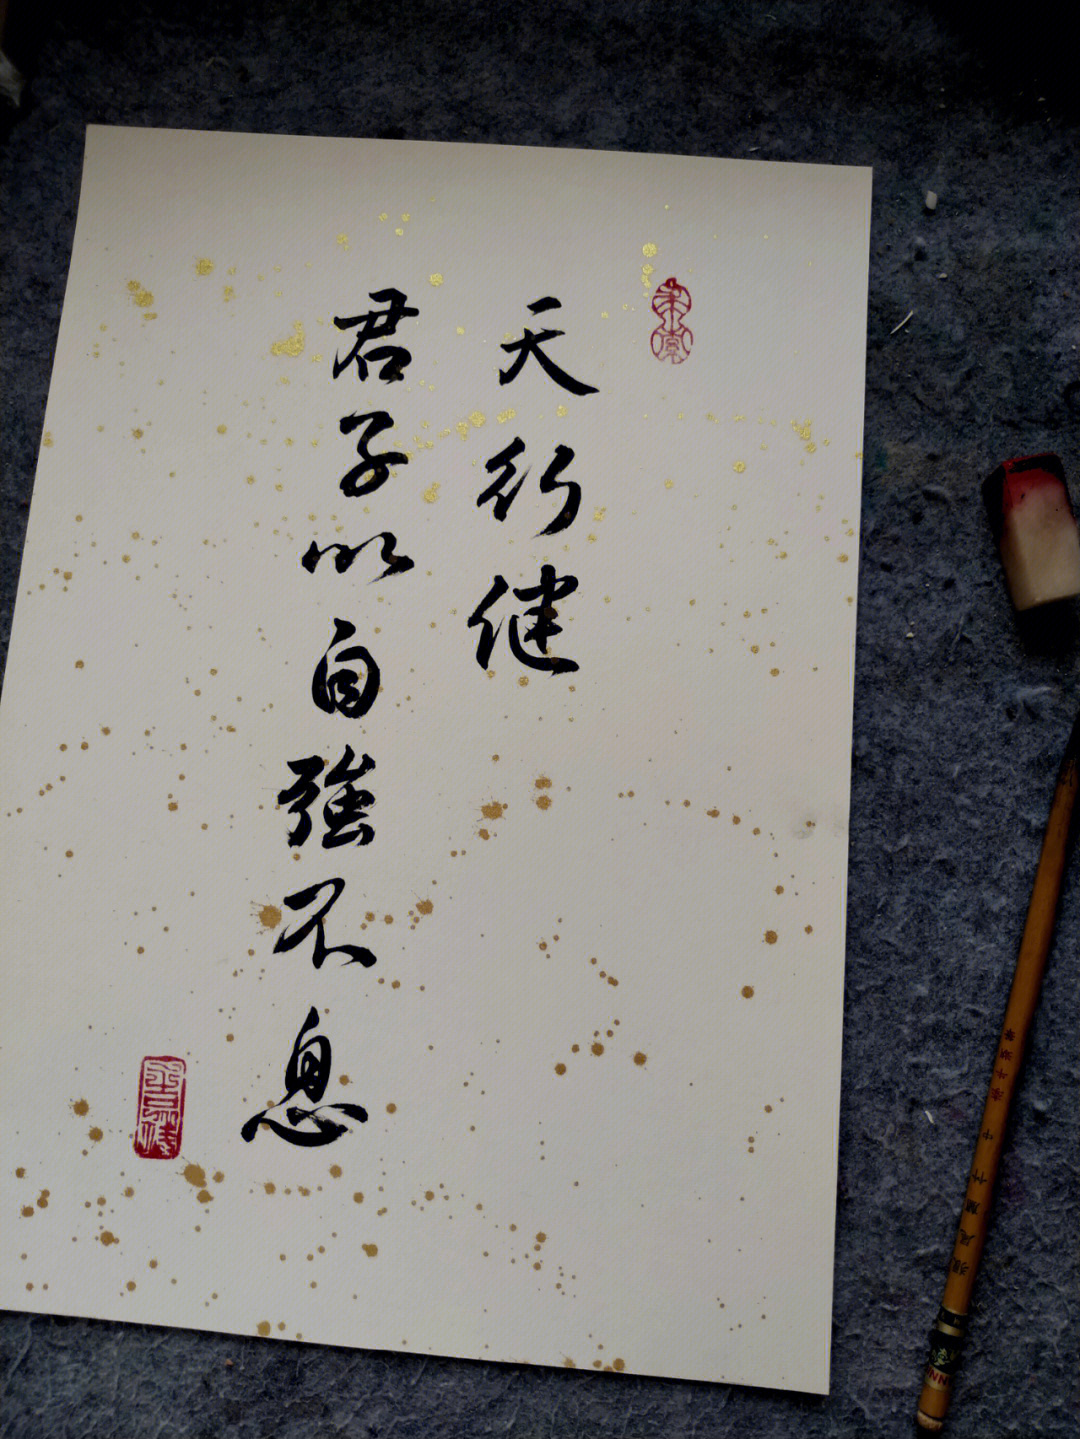 天行健
君子以自強不息